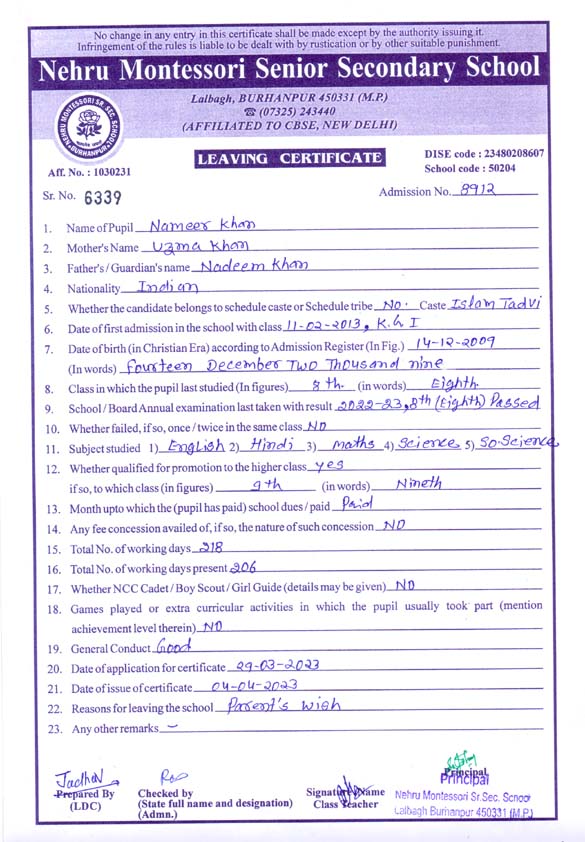 No change in any entry in this certificate shall be made except by the authority issuing it.
Infringement of the rules is liable to be dealt with by rustication or by other suitable punishment.
Nehru Montessori Senior Secondary School
Lalbagh, BURHANPUR 450331 (M.P.)
☎ (07325) 243440
(AFFILIATED TO CBSE, NEW DELHI)
NEHRU MONTESSORI SR. SEC. SCHOOL
BURHANPUR
LEAVING CERTIFICATE
DISE code : 23480208607
School code : 50204
Aff. No. : 1030231
Sr. No. 6339
Admission No. 8912
1. Name of Pupil Nameer Khan
2. Mother's Name Uzma Khan
3. Father's / Guardian's name Nadeem Khan
4. Nationality Indian
5. Whether the candidate belongs to schedule caste or Schedule tribe No. Caste Islam Tadvi
6. Date of first admission in the school with class 11-02-2013, K.G I
7. Date of birth (in Christian Era) according to Admission Register (In Fig.) 14-12-2009
(In words) Fourteen December Two Thousand nine
8. Class in which the pupil last studied (In figures) 8th. (in words) Eighth
9. School / Board Annual examination last taken with result 2022-23, 8th (Eighth) Passed
10. Whether failed, if so, once / twice in the same class NO
11. Subject studied 1) English 2) Hindi 3) Maths 4) Science 5) So-Science
12. Whether qualified for promotion to the higher class yes
if so, to which class (in figures) 9th (in words) Nineth
13. Month upto which the (pupil has paid) school dues / paid Paid
14. Any fee concession availed of, if so, the nature of such concession NO
15. Total No. of working days 218
16. Total No. of working days present 206
17. Whether NCC Cadet / Boy Scout / Girl Guide (details may be given) NO
18. Games played or extra curricular activities in which the pupil usually took part (mention
achievement level therein) NO
19. General Conduct Good
20. Date of application for certificate 29-03-2023
21. Date of issue of certificate 04-04-2023
22. Reasons for leaving the school Parent's wish
23. Any other remarks –
Jadhav
Prepared By
(LDC)
Checked by
(State full name and designation)
(Admn.)
Signature Name
Class Teacher
Principal
Principal
Nehru Montessori Sr.Sec. School
Lalbagh Burhanpur 450331 (M.P.)